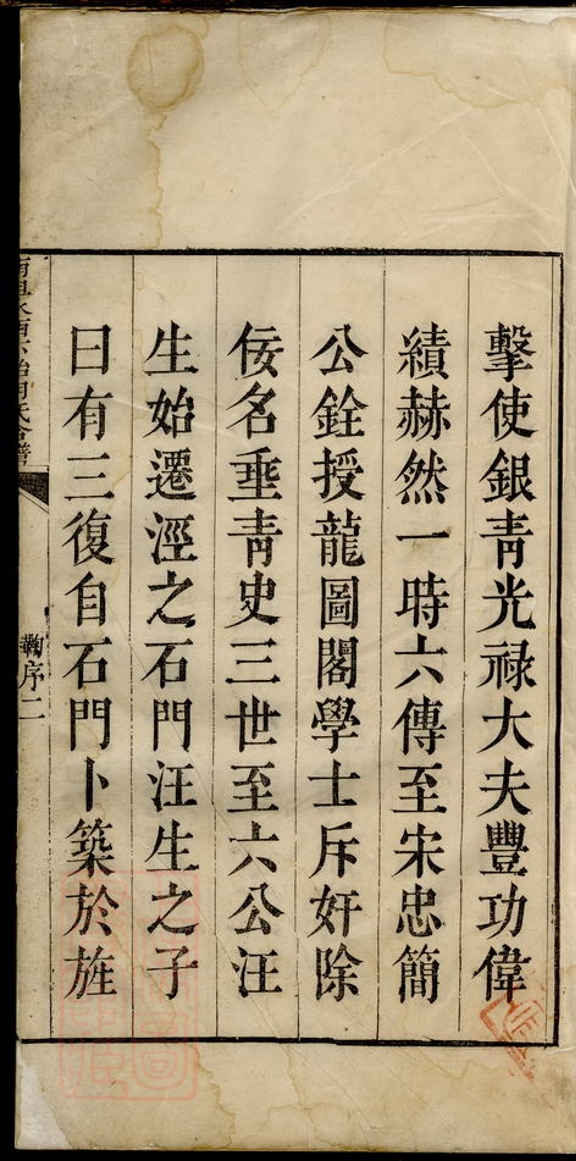 擊使銀青光祿大夫豐功偉
績赫然一時六傳至宋忠簡
公銓授龍圖閣學士斥奸除
佞名垂青史三世至六公汪
生始遷涇之石門汪生之子
曰有三復自石門卜築於旌
序二